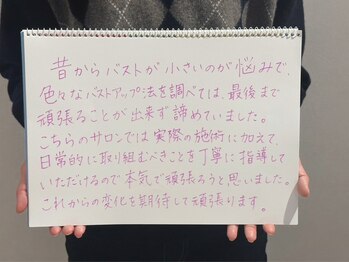 昔からバストが小さいのが悩みで、
色々なバストアップ法を調べては、最後まで
頑張ることが出来ず諦めていました。
こちらのサロンでは実際の施術に加えて、
日常的に取り組むべきことを丁寧に指導して
いただけるので本気で頑張ろうと思いました。
これからの変化を期待して頑張ります。